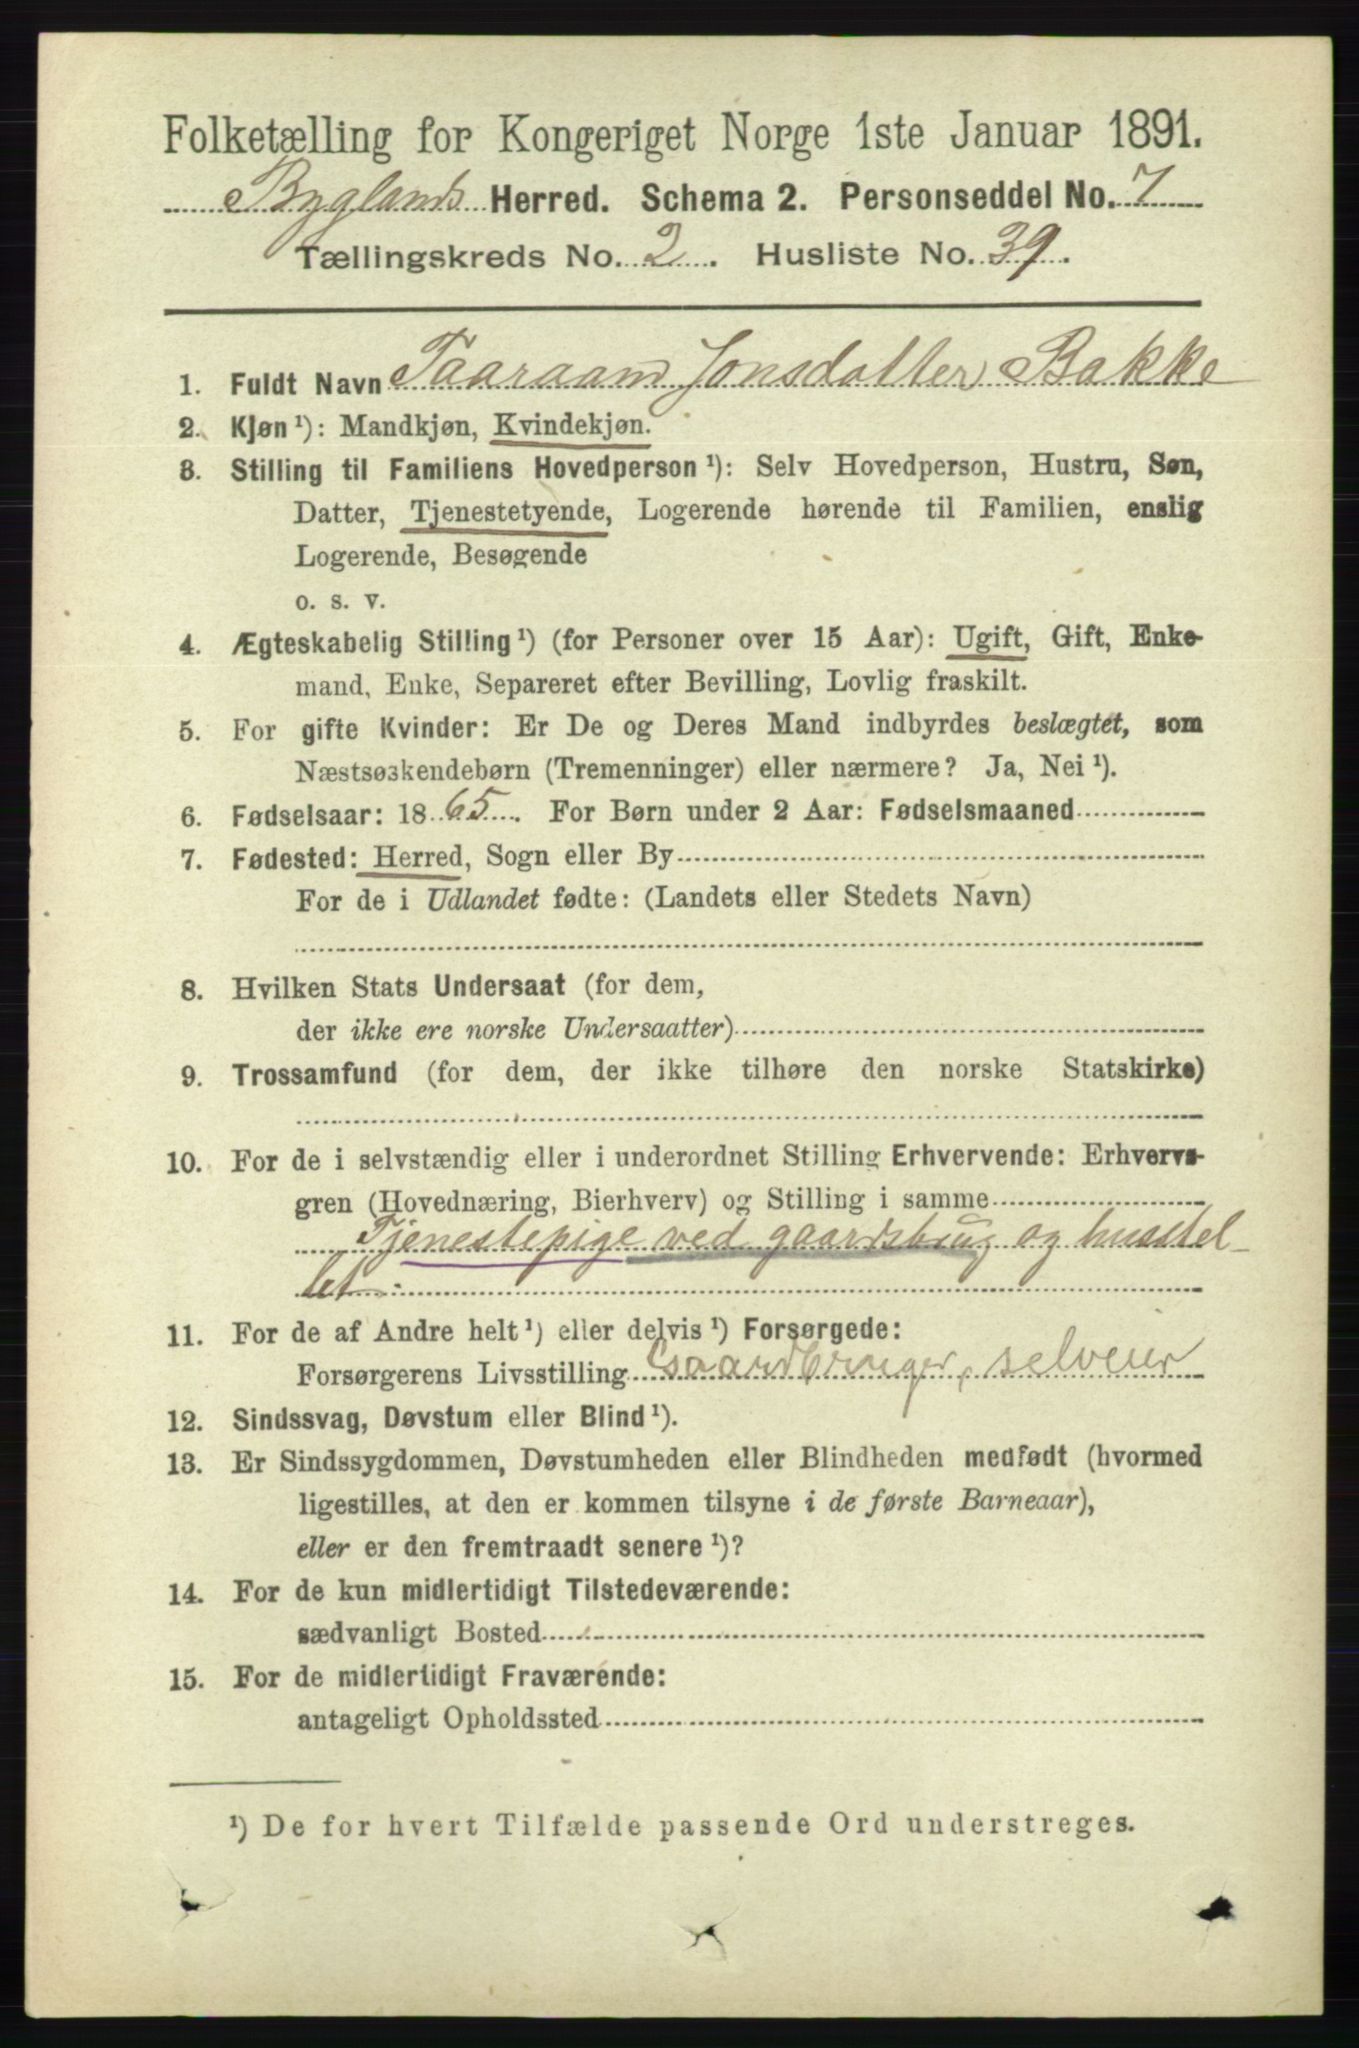 Folketælling for Kongeriget Norge 1ste Januar 1891.
Byglands Herred. Schema 2. Personseddel No. 7
Tællingskreds No. 2. Husliste No. 39.
1. Fuldt Navn Taaraam Jonsdatter Bakke
2. Kjøn ¹): Mandkjøn, Kvindekjøn.
3. Stilling til Familiens Hovedperson ¹): Selv Hovedperson, Hustru, Søn,
Datter, Tjenestetyende, Logerende hørende til Familien, enslig
Logerende, Besøgende
o. s. v.
4. Ægteskabelig Stilling ¹) (for Personer over 15 Aar): Ugift, Gift, Enke-
mand, Enke, Separeret efter Bevilling, Lovlig fraskilt.
5. For gifte Kvinder: Er De og Deres Mand indbyrdes beslægtet, som
Næstsøskendebørn (Tremenninger) eller nærmere? Ja, Nei ¹).
6. Fødselsaar: 1865. For Børn under 2 Aar: Fødselsmaaned
7. Fødested: Herred, Sogn eller By
For de i Udlandet fødte: (Landets eller Stedets Navn)
8. Hvilken Stats Undersaat (for dem,
der ikke ere norske Undersaatter)
9. Trossamfund (for dem, der ikke tilhøre den norske Statskirke)
10. For de i selvstændig eller i underordnet Stilling Erhvervende: Erhvervs-
gren (Hovednæring, Bierhverv) og Stilling i samme
Tjenestepige ved gaardsbrug og husstel-
let.
11. For de af Andre helt ¹) eller delvis ¹) Forsørgede:
Forsørgerens Livsstilling Gaardbruger, selveier
12. Sindssvag, Døvstum eller Blind ¹).
13. Er Sindssygdommen, Døvstumheden eller Blindheden medfødt (hvormed
ligestilles, at den er kommen tilsyne i de første Barneaar),
eller er den fremtraadt senere ¹)?
14. For de kun midlertidigt Tilstedeværende:
sædvanligt Bosted
15. For de midlertidigt Fraværende:
antageligt Opholdssted
¹) De for hvert Tilfælde passende Ord understreges.